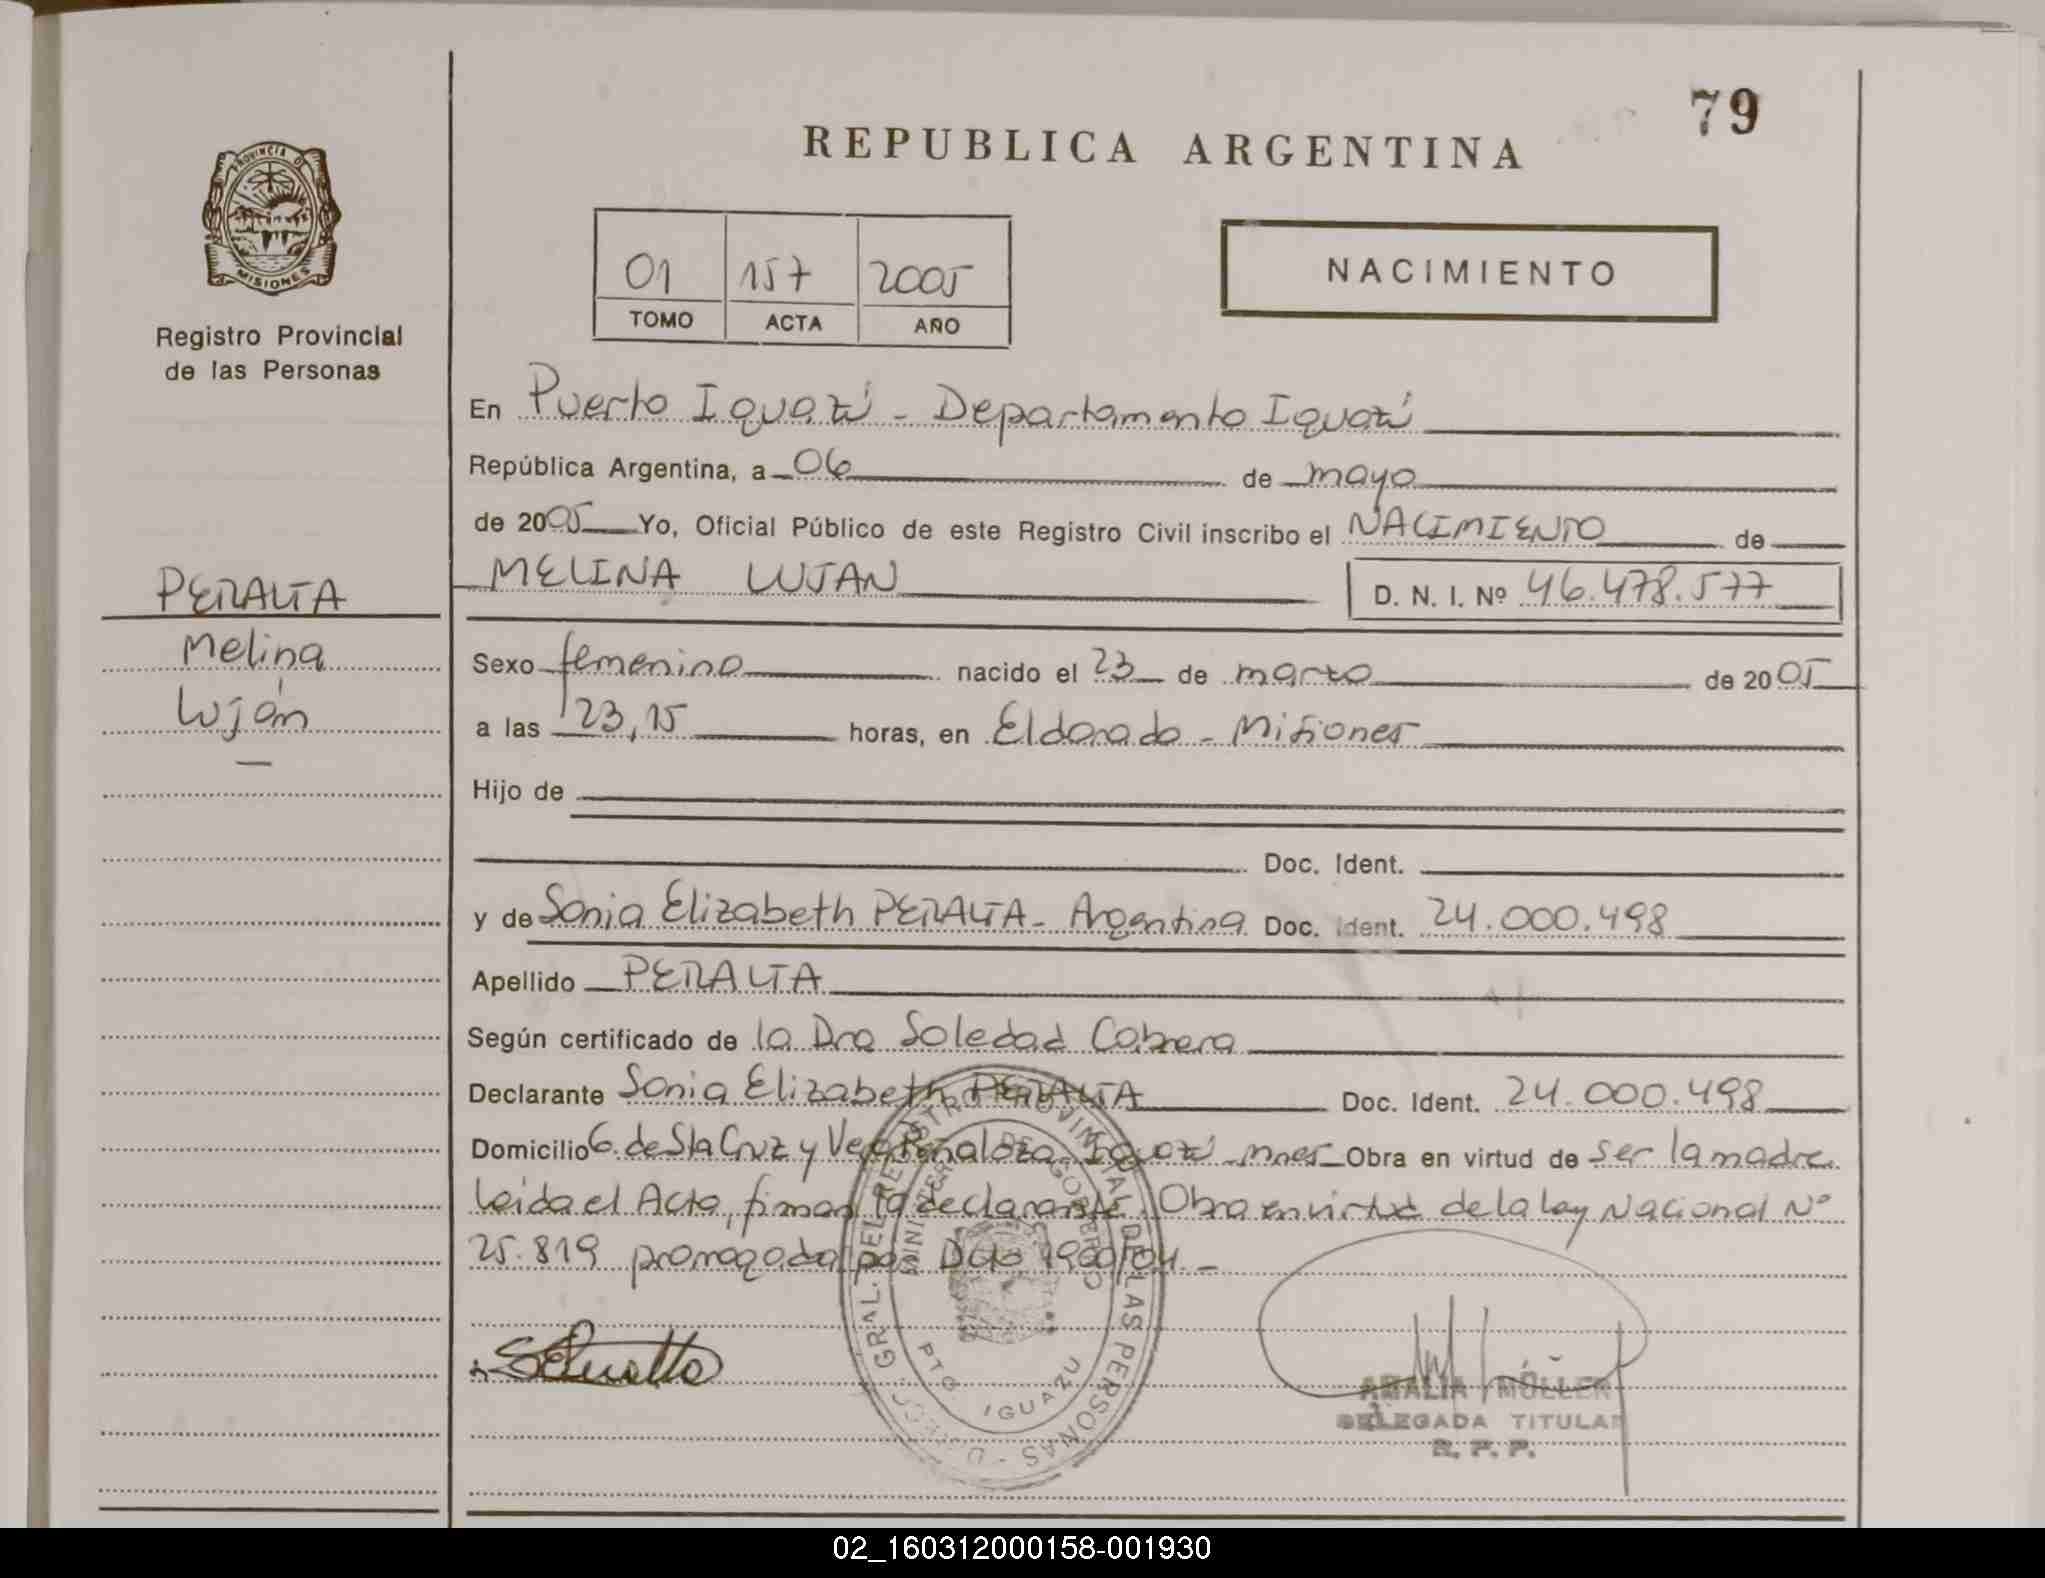 79
REPUBLICA ARGENTINA
PROVINCIA D
MISIONES
Registro Provincial
de las Personas
01 157 2005
TOMO ACTA AÑO
NACIMIENTO
En Puerto Iguazú - Departamento Iguazú
República Argentina, a 06 de mayo
de 2005 Yo, Oficial Público de este Registro Civil inscribo el NACIMIENTO de
MELINA LUJAN D. N. I. Nº 46.478.577
PERALTA
Melina
Luján
Sexo femenino nacido el 23 de marzo de 2005
a las 23,15 horas, en Eldorado - Misiones
Hijo de
Doc. Ident.
y de Sonia Elizabeth PERALTA - Argentina Doc. Ident. 24.000.498
Apellido PERALTA
Según certificado de la Dra Soledad Cabrera
Declarante Sonia Elizabeth PERALTA Doc. Ident. 24.000.498
Domicilio G. de Sta Cruz y Vera Peñaloza Iguazú - mnes Obra en virtud de ser la madre.
Leida el Acta, firman la declarante. Obra en virtud de la ley Nacional Nº
25.819 prorrogada por Dcto 1900/04. -
GRAL. DEL REGISTRO PROVINCIAL DE LAS PERSONAS
MINISTERIO DE GOBIERNO
PTO IGUAZU
AMALIA MÜLLER
DELEGADA TITULAR
R. P. P.
02_160312000158-001930